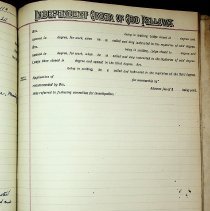 INDEPENDENT ORDER OF ODD FELLOWS.
Bro.
being in waiting, Lodge closed in degree and
opened in degree, for work, when he was called and duly instructed in the mysteries of said degree.
Bro.
being in waiting, Lodge closed in degree and
opened in degree, for work, when he was called and duly instructed in the mysteries of said degree.
Lodge then closed in degree and opened in the third degree. Bro.
being in waiting, he was called and instructed in the mysteries of the third degree.
Application of for membership
recommended by Bro. Advance fee of $ being paid,
was referred to following committee for investigation: